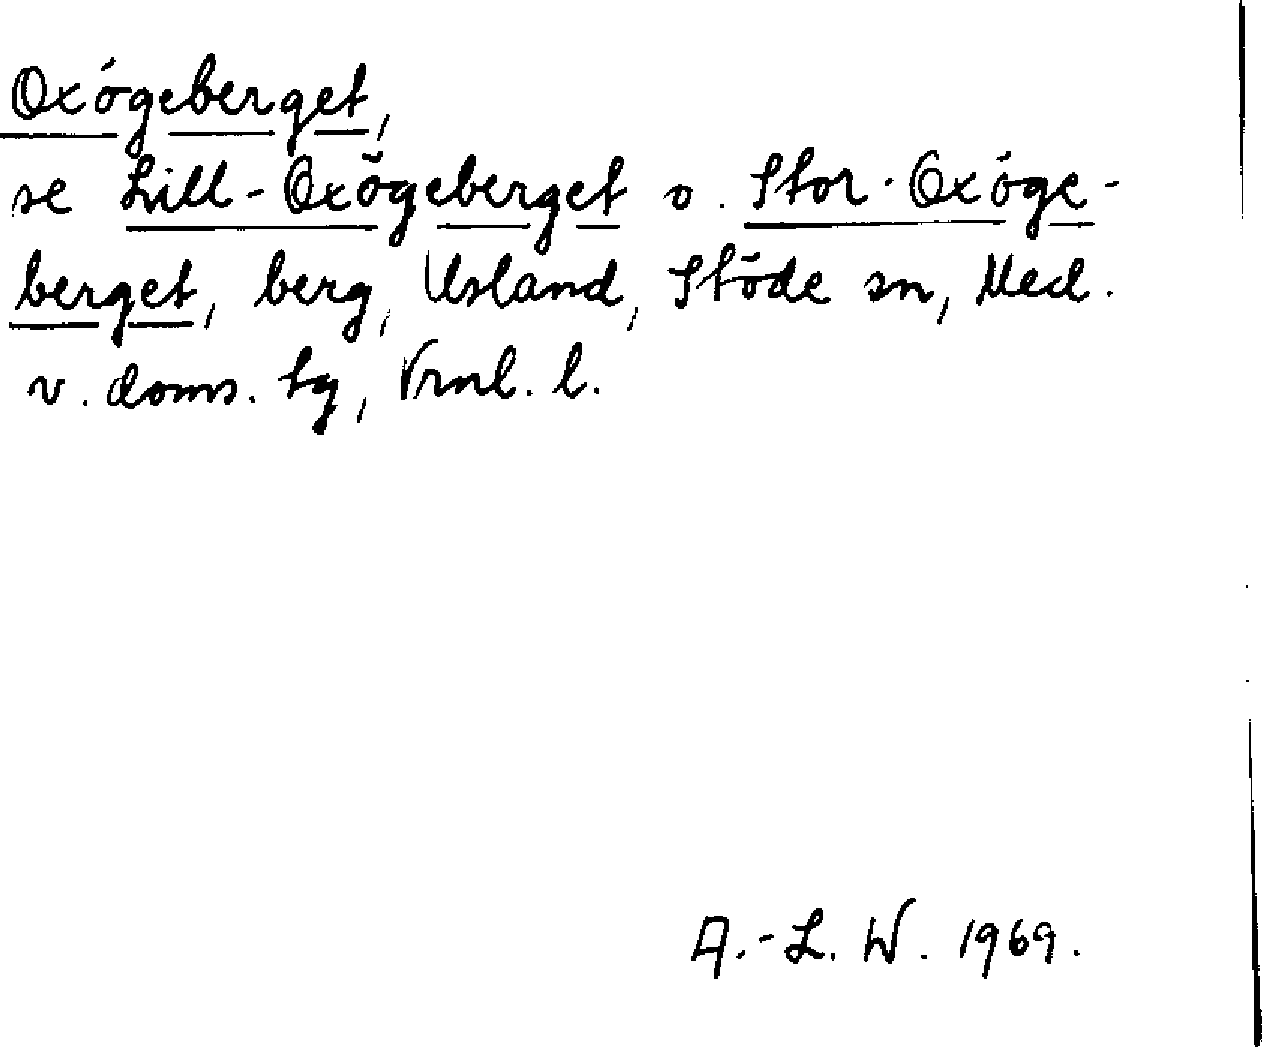 Oxögeberget,
se Lill-Oxögeberget o. Stor-Oxöge-
berget, berg, Usland, Stöde sn, Med.
v. doms. tg, Vrnl. l.
A.-L. W. 1969.